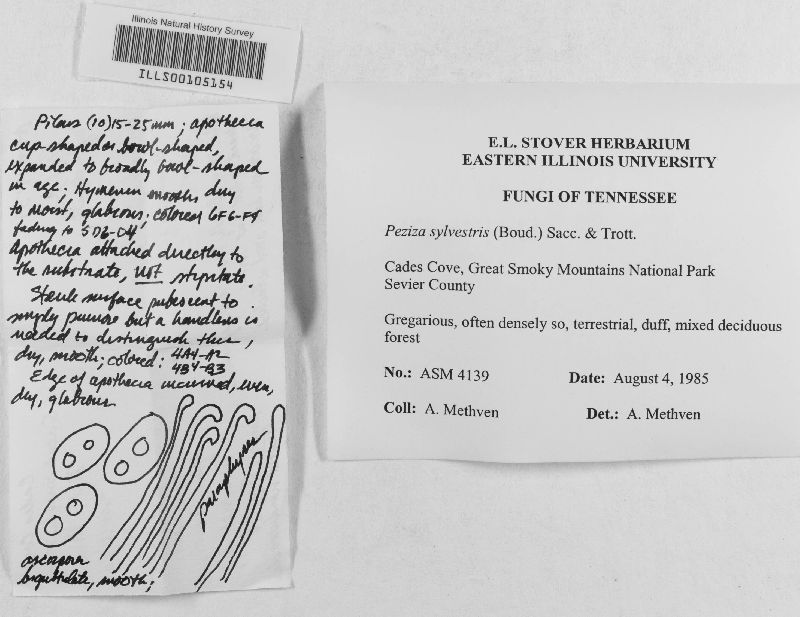 Illinois Natural History Survey
ILLS00105154
Pileus (10)15-25mm; apothecia
cup-shaped or bowl-shaped,
expanded to broadly bowl-shaped
in age; Hymenium smooth, dry
to moist, glabrous; colored 6F6-F4
fading to 5D6-D4,
Apothecia attached directly to
the substrate, not stipitate.
Sterile surface pubescent to
but a handlens is
needed to distinguish this,
dry, smooth; colored: 4A4-A2
4B4-B3
Edge of apothecia incurved, even,
dry, glabrous
paraphyses
ascospores
biguttulate, smooth;
E.L. STOVER HERBARIUM
EASTERN ILLINOIS UNIVERSITY
FUNGI OF TENNESSEE
Peziza sylvestris (Boud.) Sacc. & Trott.
Cades Cove, Great Smoky Mountains National Park
Sevier County
Gregarious, often densely so, terrestrial, duff, mixed deciduous
forest
No.: ASM 4139 Date: August 4, 1985
Coll: A. Methven Det.: A. Methven